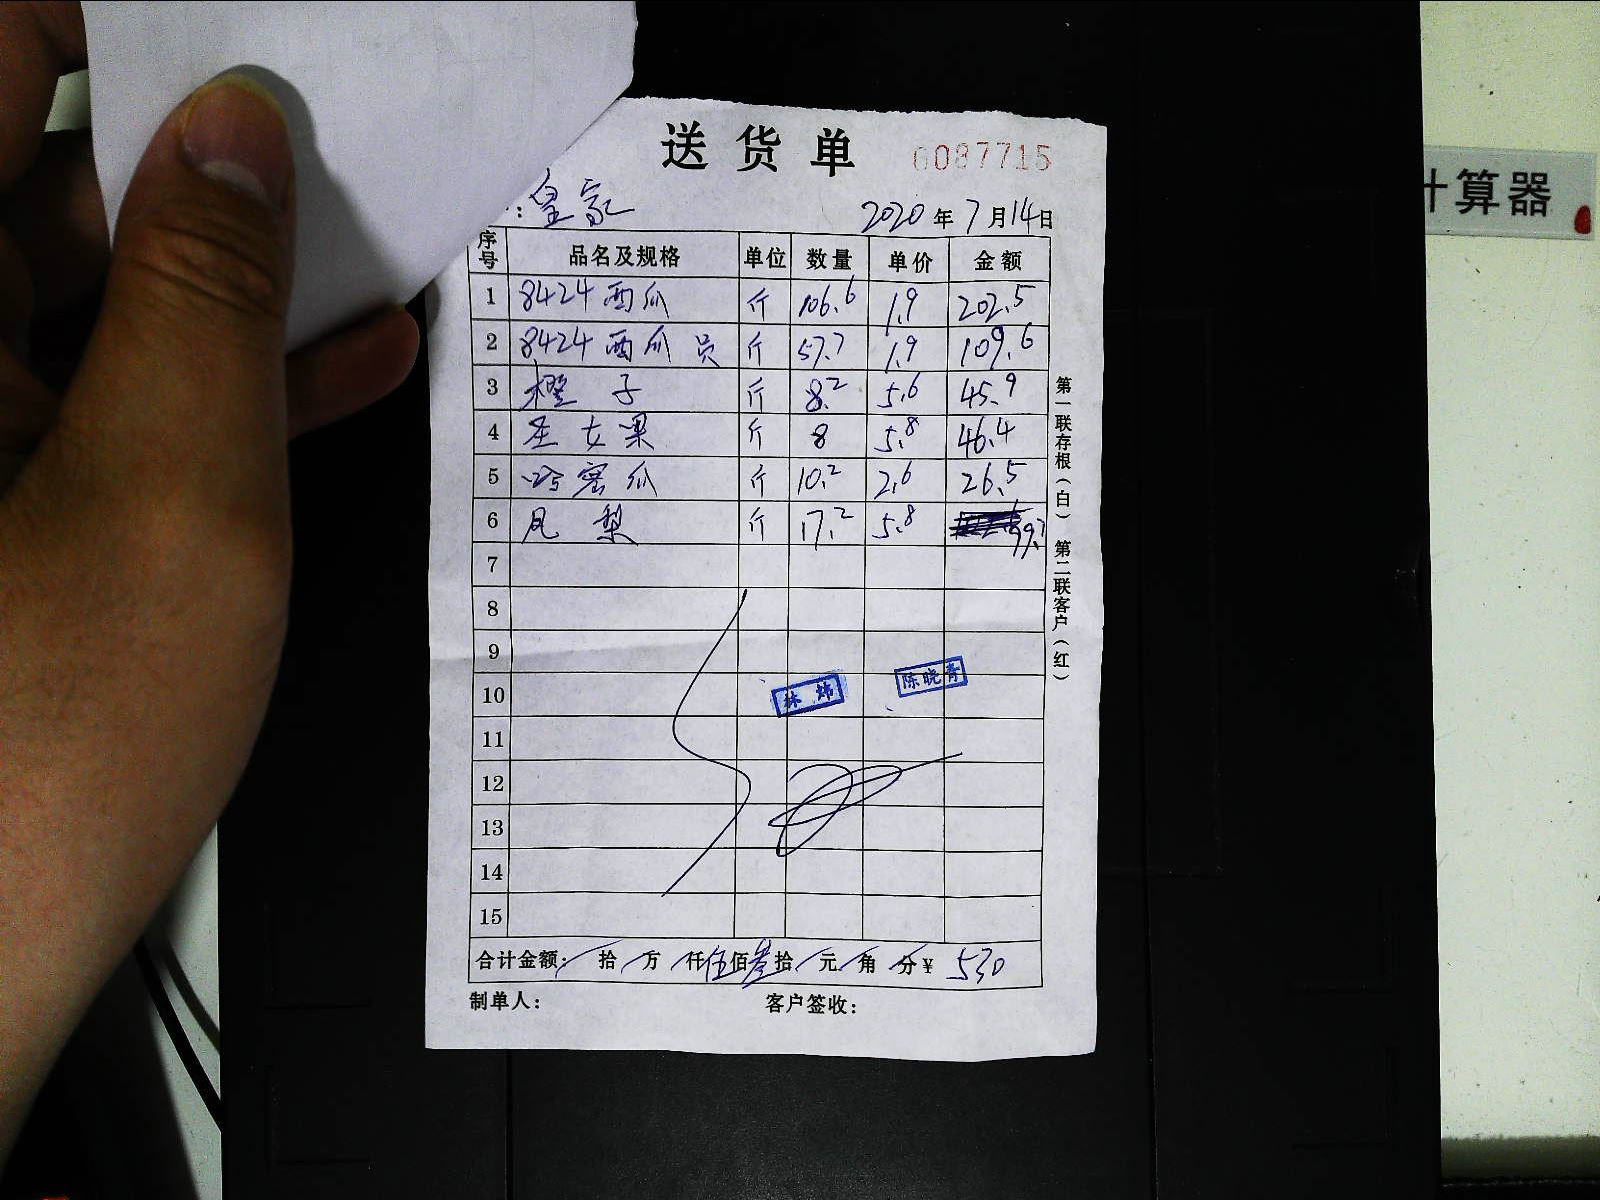 送货单 6087715
：皇家 2020年7月14日
序号 品名及规格 单位 数量 单价 金额
1 8424西瓜 斤 106.6 1.9 202.5
2 8424西瓜 员 斤 57.7 1.9 109.6
3 橙子 斤 8.2 5.6 45.9
4 圣女果 斤 8 5.8 46.4
5 哈密瓜 斤 10.2 2.6 26.5
6 凤梨 斤 17.2 5.8
7
8
9
10
11
12
13
14
15
林炜 陈晓青
合计金额： 拾 万 仟伍佰叁拾 元 角 分￥ 530
制单人： 客户签收：
第一联存根（白） 第二联客户（红）
计算器